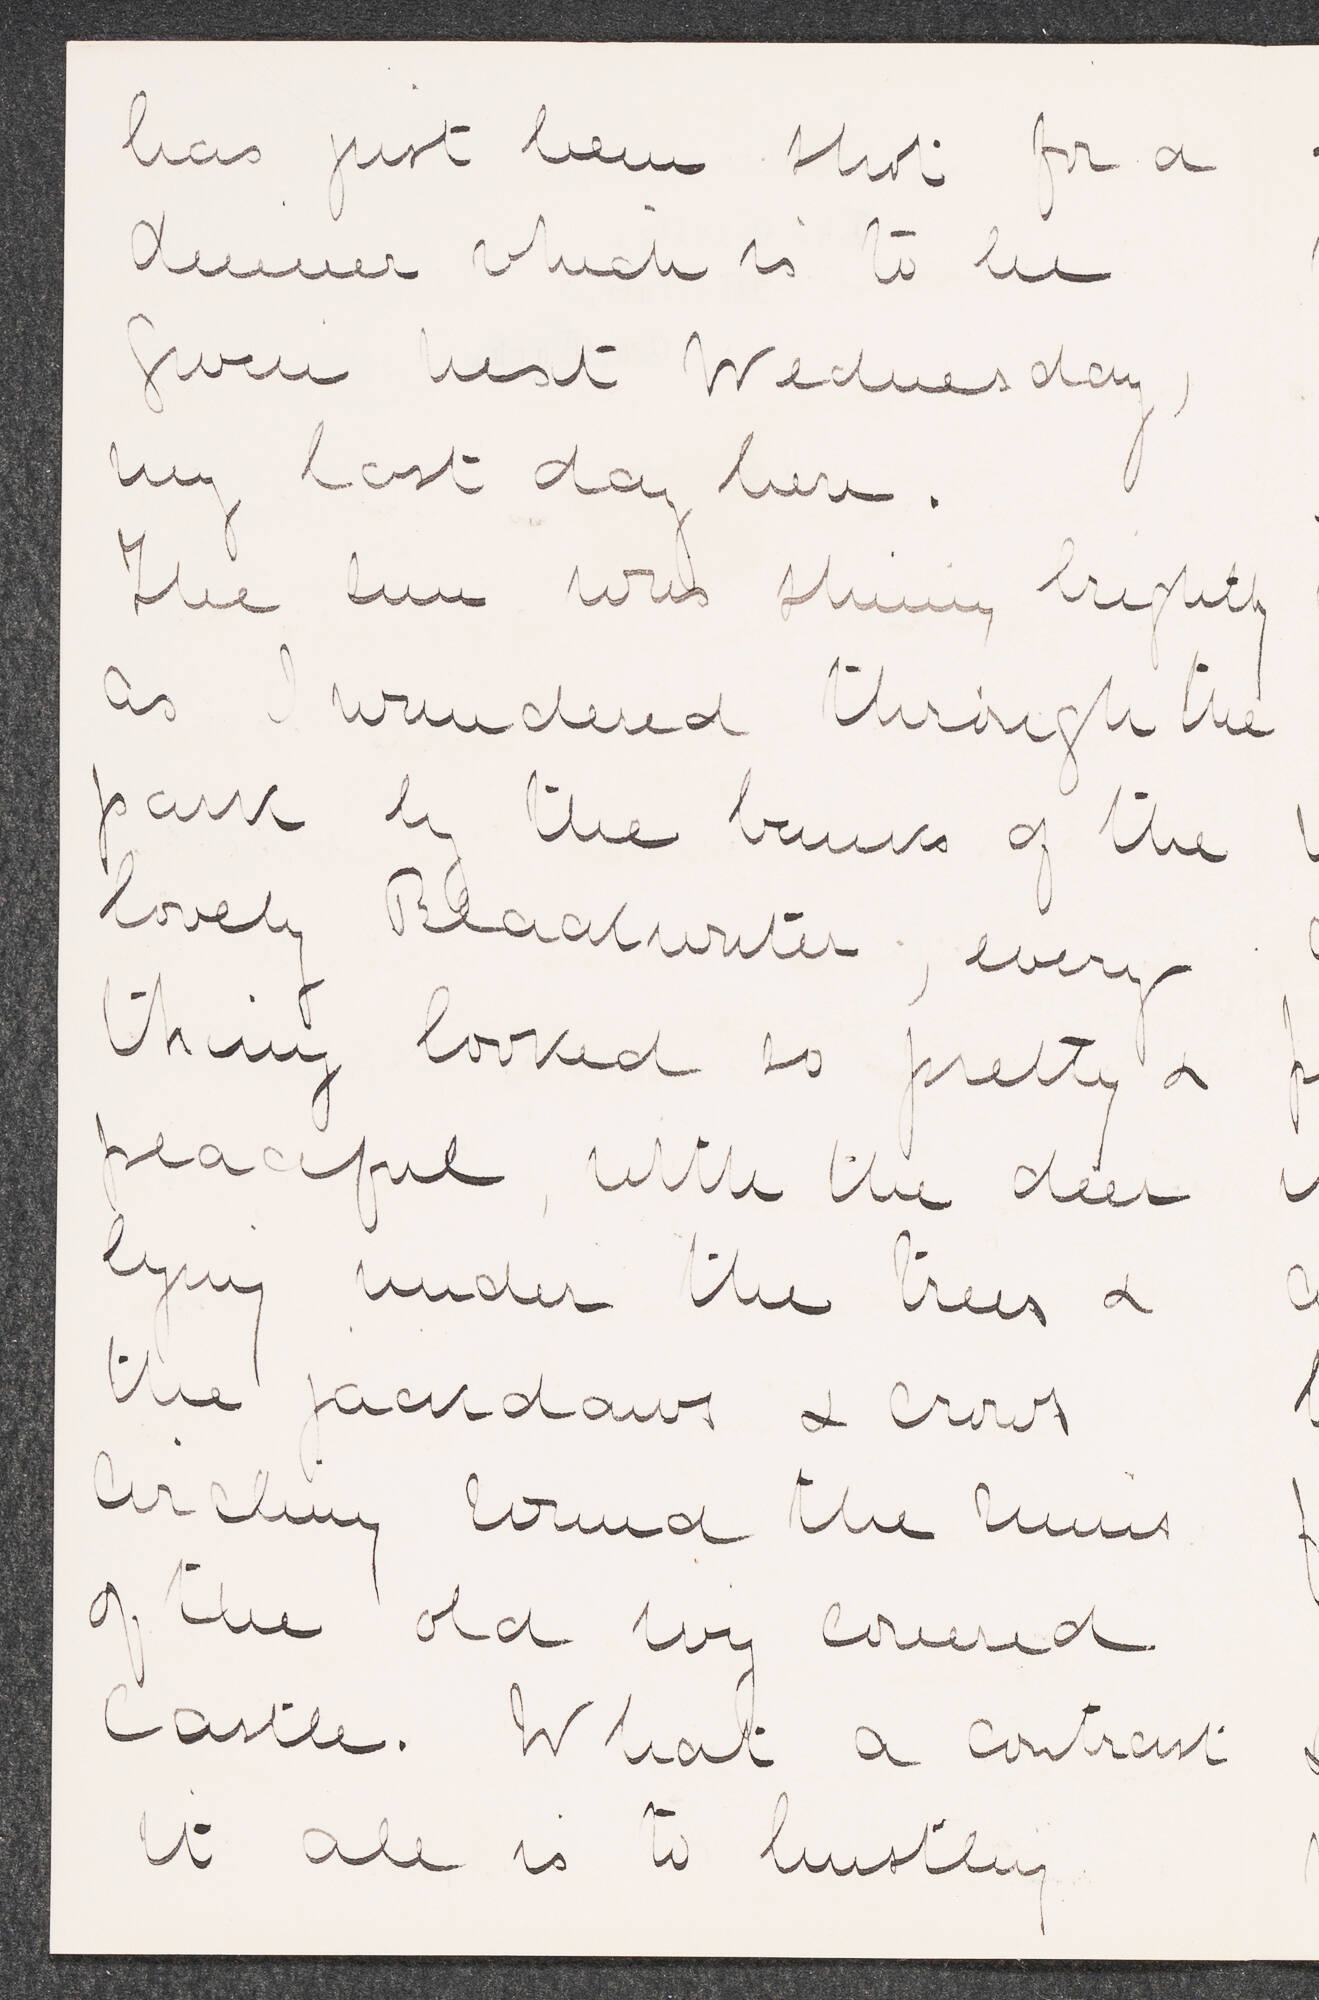 has just been shot for a
dinner which is to be
given next Wednesday,
my last day here.
The sun was shining brightly
as I wandered through the
park by the banks of the
lovely Blackwater, every
thing looked so pretty &
peaceful, with the deer
lying under the trees &
the jackdaws & crows
circling round the ruins
of the old ivy covered
Castle. What a contrast
it all is to bustling